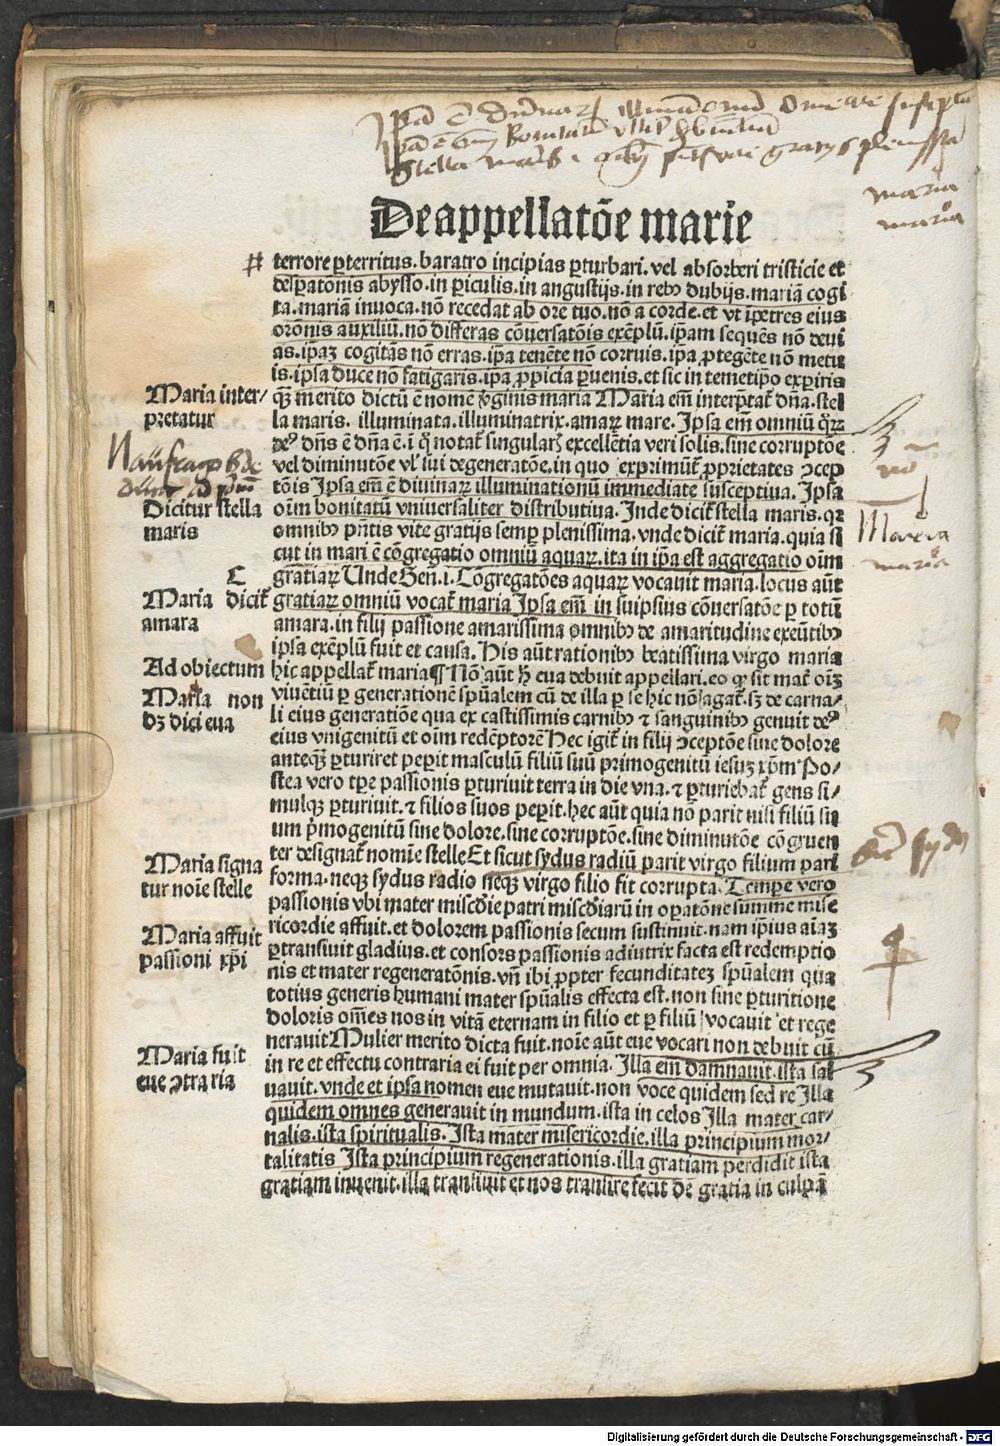 De appellatōe marie
terrore ꝑterritus. baratro incipias ꝑturbari. vel absorberi tristicie et
desꝑatōnis abysso. in ꝑiculis. in angustijs. in rebꝰ dubijs. mariā cogi
ta. mariā inuoca. nō recedat ab ore tuo. nō a corde. et vt īpetres eius
orōnis auxiliū. nō differas cōuersatōis exēplū. ip̄am sequēs nō deui
as. ip̄aꝫ cogitās nō erras. ip̄a tenēte nō corruis. ip̄a ꝓtegēte nō metu
is. ipsa duce nō fatigaris. ipa ꝓpicia ꝑuenis. et sic in temetip̄o exꝑiris
qꝫ merito dictū ē nomē v̓ginis maria Maria em̄ interp̄tat᷑ dn̄a. stel
la maris. illuminata. illuminatrix. amaꝝ mare. Ipsa em̄ omniū
deꝰ dn̄s ē dn̄a ē. i q̄ notat᷑ singularē excellētia veri solis. sine corruptōe
vel diminutōe vl̓ sui degeneratōe. in quo exprimūt᷑ ꝓprietates ↄcep
tōis Ipsa em̄ ē diuinaꝝ illuminationū immediate susceptiua. Ipsa
oīm bonitatū vniuersaliter distributiua. Inde dicit᷑ stella maris. qꝛ
omnibꝰ p̄ntis vite gratijs semꝑ plenissima. vnde dicit᷑ maria. quia si
cut in mari ē cōgregatio omniū aquaꝝ. ita in ip̄a est aggregatio oīm
gratiaꝝ Unde Gen̄. i. Cōgregatōes aquaꝝ vocauit maria. locus aūt
gratiaꝝ omniū vocat᷑ maria Ipsa em̄ in suipsius cōuersatōe ꝑ totū
amara. in filij passione amarissima omnibꝰ de amaritudine exeūtibꝰ
ipsa exēplū fuit et causa. His aūt rationibꝰ beatissima virgo maria
hic appellat᷑ maria ¶ Nō aūt ħ eua debuit appellari. eo ꝙ sit mat᷑ oīꝫ
viuētiū ꝑ generationē sp̄ualem cū de illa ꝑ se hic nō agat᷑. sꝫ de carna/
li eius generatiōe qua ex castissimis carnibꝰ ⁊ sanguinibꝰ genuit deꝰ
eius vnigenitū et oīm redēptorē Hec igit᷑ in filij ↄceptōe sine dolore
anteqꝫ ꝑturiret peꝑit masculū filiū suū primogenitū iesuꝫ xp̄m Po/
stea vero tꝑe passionis ꝑturiuit terra in die vna. ⁊ ꝑturiebat᷑ gens si/
mulqꝫ ꝑturiuit. ⁊ filios suos peꝑit. hec aūt quia nō parit nisi filiū su
um p̓mogenitū sine dolore. sine corruptōe. sine diminutōe cōgruen
ter designat᷑ nomīe stelle Et sicut sydus radiū parit virgo filium pari
forma. neqꝫ sydus radio neqꝫ virgo filio fit corrupta. Tempe vero
passionis vbi mater misc̄die patri misc̄diarū in oꝑatōne summe mise
ricordie affuit. et dolorem passionis secum sustinuit. nam ip̄ius aīaꝫ
ꝑtransiuit gladius. et consors passionis adiutrix facta est redemptio
nis et mater regeneratōnis. vn̄ ibi ꝓpter fecunditateꝫ sp̄ualem qua
totius generis humani mater sp̄ualis effecta est. non sine ꝑturitione
doloris om̄es nos in vitā eternam in filio et ꝑ filiū vocauit et rege
nerauit Mulier merito dicta fuit. noīe aūt eue vocari non debuit cū
in re et effectu contraria ei fuit per omnia. Illa em̄ damnauit. ista sal
uauit. vnde et ipsa nomen eue mutauit. non voce quidem sed re Illa
quidem omnes generauit in mundum. ista in celos Illa mater car/
nalis. ista spiritualis. Ista mater misericordie. illa principium mor/
talitatis Ista principium regenerationis. illa gratiam perdidit ista
gratiam inuenit. illa transiuit et nos transire fecit de gratia in culpā
Maria inter/
pretatur
Dicitur stella
maris
Maria dicit᷑
amara
Ad obiectum
Maria non
dꝫ dici eua
Maria signa
tur noīe stelle
Maria affuit
passioni xp̄i
Maria fuit
eue ↄtraria
maria
maria
Maria
maria
Digitalisierung gefördert durch die Deutsche Forschungsgemeinschaft - DFG